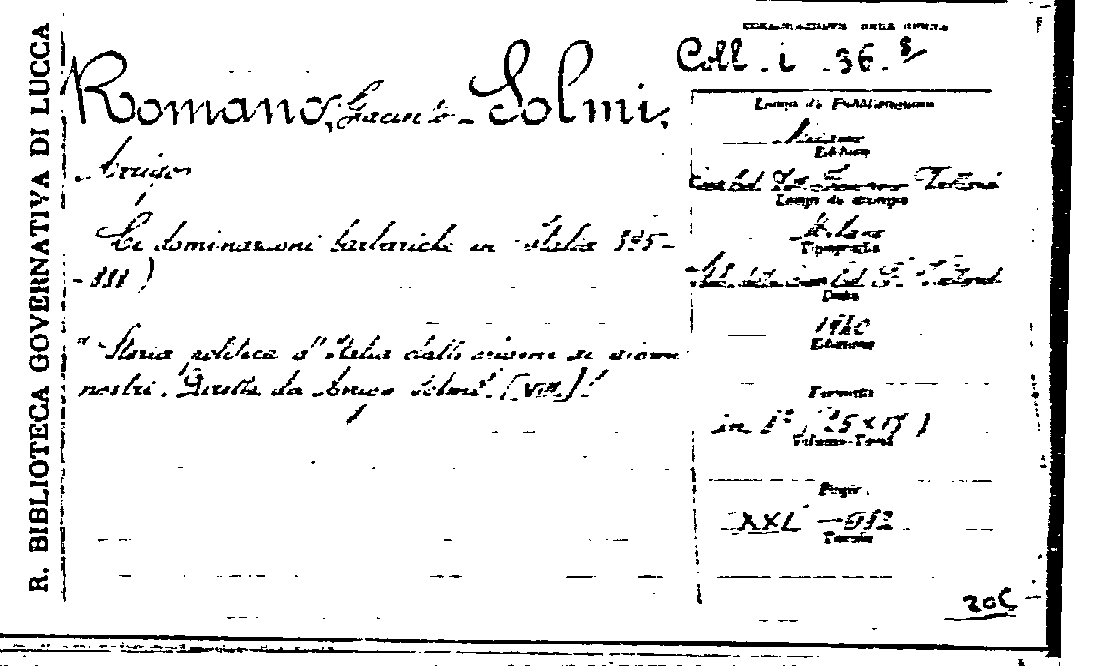 R. BIBLIOTECA GOVERNATIVA DI LUCCA
Coll. i. 36.
Romano, Giacinto - Solmi,
Arrigo
Le dominazioni barbariche in Italia 395-
-888)
"Storia politica d'Italia dalle origini ai giorni
nostri. Diretta da Arrigo Solmi" [VIII]
Luogo di Pubblicazione
Milano
Editore
Luogo di stampa
Milano
Tipografia
Data
1940
Edizione
Formato
in 8° (25 x 17)
Volume-Tomi
Pagine
XXI -
Tavole
206